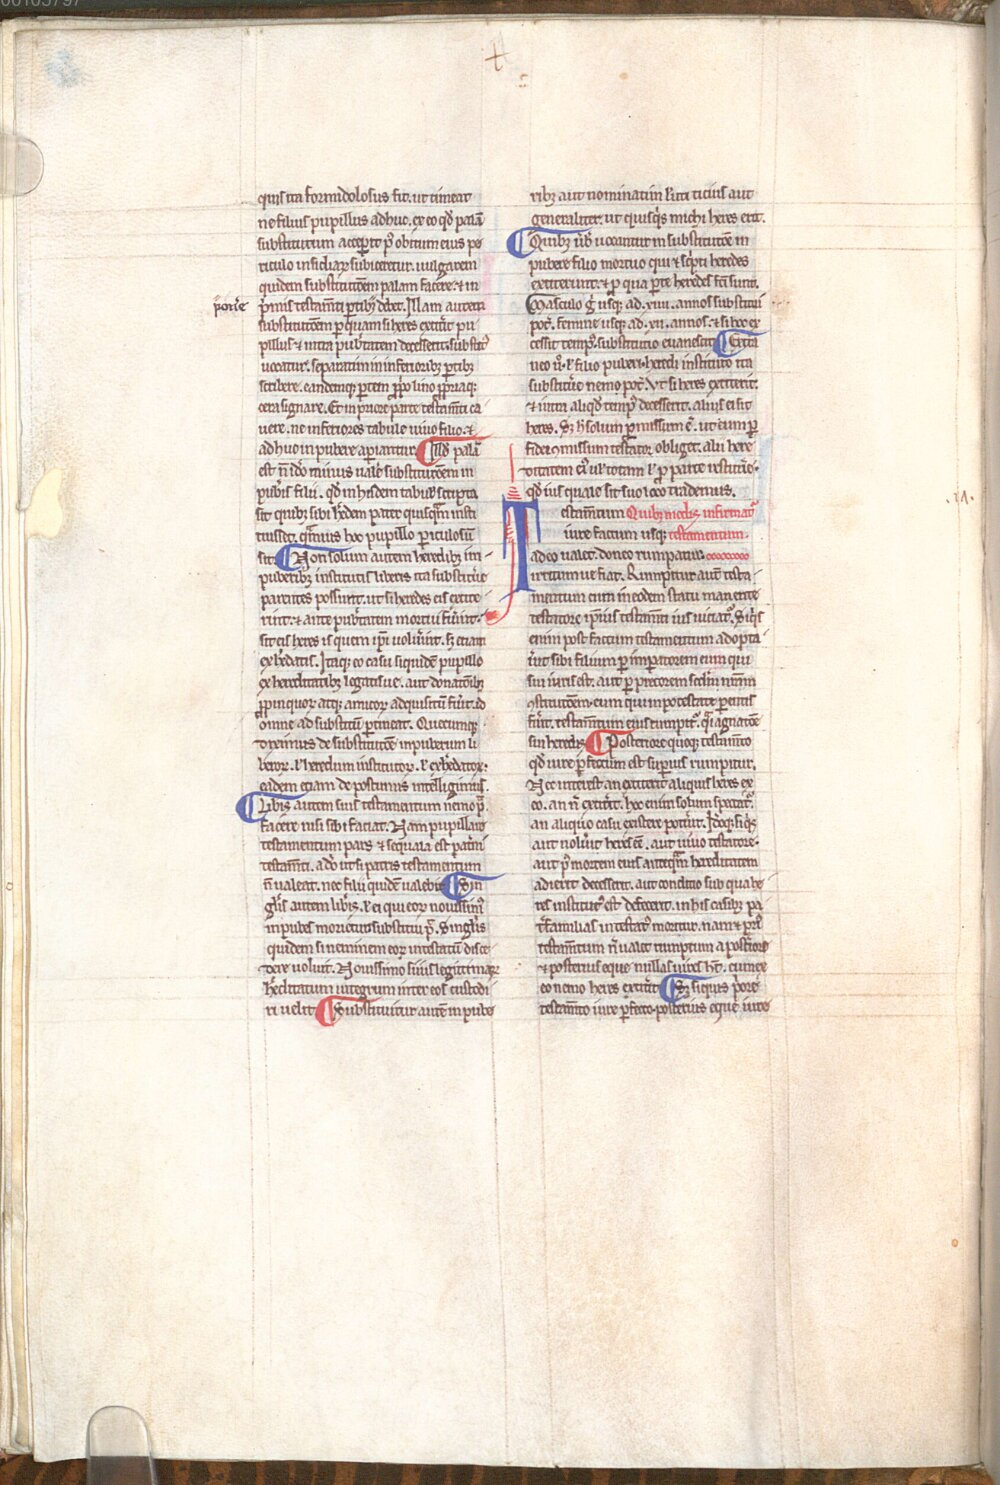 00105797
quis ita formidolosus sit. ut timeat
ne filius pupillus adhuc. ex eo qd palā
substitutum accepit p̄ obitum eius pe
riculo insidiaꝝ subiceretur. uulgarem
quidem substitutōem palam facere. & in
porie
p̄mis testam̄ti ꝑtibꝫ debet. Illam autem
substitutōem ꝑ quam si heres extitīt pu
pillus & intra pub̄tatem decesserit. substit̄
uocatur. separatim in inferioribꝫ ꝑtibꝫ
scribere. eandemqꝫ ꝑtem ꝓprio lino ꝓpriaqꝫ
cera signare. Et in priore parte testam̄ti ca
uere. ne inferiores tabule uiuo filio. &
adhuc inpubere aꝑiantur. Illd̄ palā
est n̄ ido minus ualē substitutōem in
pub̄is filii. qd̄ in hisdem tabul̄ scripta
sit quibꝫ sibi h̄edem pater quisq̄m insti
tuisset. q̄muis hoc pupillo ꝑiculosū
sit. Non solum autem heredibꝫ im
puberibꝫ institutis liberis ita substitūe
parentes possunt. ut si heredes eis extite
rint. & ante pub̄tatem mortui fūint.
sit eis heres is quem ip̄i uolūint. sꝫ etiam
exh̄edatis. Itaqꝫ eo casu siquidē pupillo
ex hereditatibꝫ legatisue. aut donatōibꝫ
ꝓpinquoꝝ atqꝫ amicoꝝ adquisitū fūit. id
omne ad substitutū ꝑtineat. Quecumqꝫ
diximus de substitutōe inpuberum li
beroꝝ. ł heredum institutoꝝ. ł exh̄edatoꝝ.
eadem etiam de postumis intelligimus.
Libis autem suis testamentum nemo p̄.
facere nisi sibi faciat. Nam pupillare
testamentum pars & sequela est pat̄ni
testam̄ti. ado ut si patris testamentum
n̄ ualeat. nec filii quidē ualebit. Sin
gl̄is autem lib̄is. ł ei qui eoꝝ nouissim̄
inpubes morietur substitui p̄. Singl̄is
quidem si neminem eoꝝ intestatū dece
dere voluit. Nouissimo si ius legittimaꝝ
h̄editatum integrum inter eos custodi
ri uelit. Substituitur autē inpube
ribꝫ aut nominatim siti ticius aut
generaliter. ut quisq̄s michi heres erit.
Quibꝫ ūb̄ uocantur in substitutōe in
pubere filio mortuo qui & sc̄pti heredes
extiterunt. & ꝓ qua ꝑte heredes fc̄i sunt.
Masculo ḡ usqꝫ ad. xiiii. annos substitui
pot̄. femine usqꝫ ad. xii. annos. & si hoc ex
cessit temp⁹. substitutio euanescit. Extra
neo ū. ł filio puberi heredi instituto ita
substitūe nemo pot̄. Vt si heres extiterit.
& intra aliqd̄ temp⁹ decesserit. alius ei sit
heres. Sꝫ h̄ solum ꝑmissum ē. ut eum ꝑ
fidei ꝯmissum testator obliget. alii here
ditatem ei⁹ ul̄ totam ł ꝓ parte restitūe.
qd̄ ius quale sit suo loco trademus.
estam̄tum Quibꝫ modis infirmat̄
iure factum usqꝫ testamentum.
.iA.
T adeo ualet. donec rumpatur.
Irritumue fiat. Rumpitur aut̄ testa
mentum cum in eodem statu manente
testatore ip̄ius testam̄ti ius uiciat̄. Siq̄s
enim post factum testamentum adopta
ūit sibi filium ꝑ imꝑatorem eum qui
sui iuris est. aut ꝑ pretorem scdm nr̄am
ꝯstitutōem. eum qui in potestate ꝑentis
fūit. testam̄tum eius rumpit̄. q̄si agnatōe
sui heredis. Posteriore quoqꝫ testam̄to
qd̄ iure ꝑfectum est suꝑius rumpitur.
Nec interest an extiterit aliquis heres ex
eo. an n̄ extitīt. hoc enim solum spectat̄.
an aliquo casu existere potūit. Idoqꝫ siq̄s
aut nolūit heres eē. aut uiuo testatore.
aut p̄ mortem eius anteq̄m hereditatem
adierit decesserit. aut conditio sub qua he
res institut⁹ est defecerit. in his casibꝫ pa
t̄familias intestat⁹ moritur. nam & pri⁹
testam̄tum n̄ ualet ruptum a postīore
& posterius eque nullas uires h̄t. cum ex
eo nemo heres extitīt. Sꝫ siquis p̄ore
testam̄to iure ꝑfecto. posterius eque iure